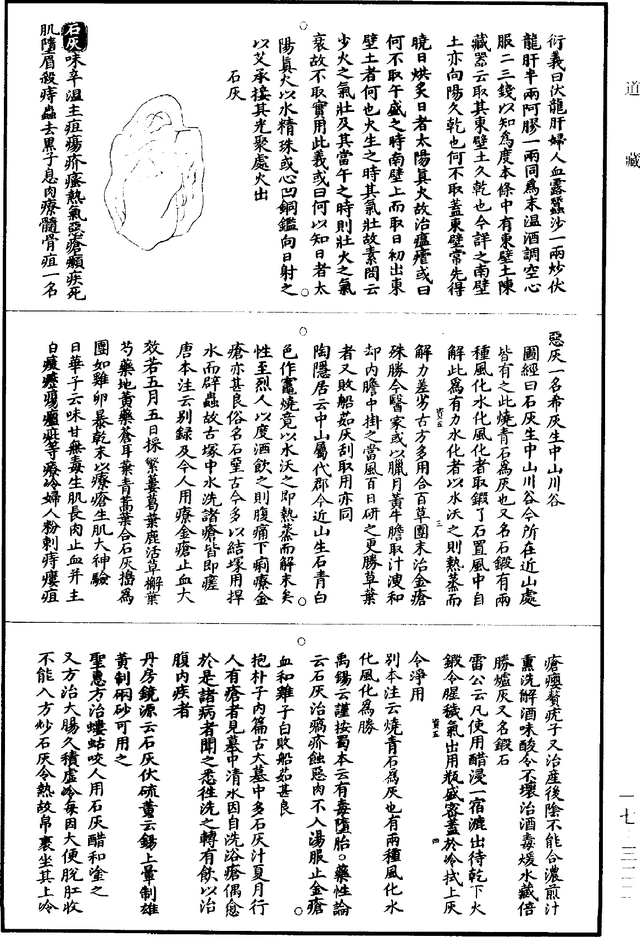 道藏
衍義曰伏龍肝婦人血露蠶沙一兩炒伏
龍肝半兩阿膠一兩同為末温酒調空心
服二三錢以知為度本條中有東壁土陳
藏器云取其東壁土久乾也今詳之南壁
土亦向陽久乾也何不取蓋東壁常先得
曉日烘炙日者太陽真火故治瘟瘴或曰
何不取午盛之時南壁上而取日初出東
壁土者何也火生之時其氣壯故素問云
少火之氣壯及其當午之時則壯火之氣
衰故不取實用此義或曰何以知日者太
陽真火以水精珠或心凹銅鑑向日射之
以艾承接其光聚處火出
石灰
石灰味辛温主疽瘍疥瘙熱氣惡瘡癩疾死
肌墮眉殺痔蟲去黑子息肉療髓骨疽一名
惡灰一名希灰生中山川谷
圖經曰石灰生中山川谷今所在近山處
皆有之此燒青石為灰也又名石鍛有兩
種風化水化風化者取鍛了石置風中自
解此為有力水化者以水沃之則熱蒸而
解力差劣古方多用合百草團末治金瘡
殊勝今醫家或以臘月黄牛膽取汁溲和
却内膽中掛之當風百日研之更勝草葉
者又敗船茹灰刮取用亦同
陶隱居云中山屬代郡今近山生石青白
色作竈燒竟以水沃之即熱蒸而解末矣
性至烈人以度酒飲之則腹痛下痢療金
瘡亦甚良俗名石堊古今多以結塚用捍
水而辟蟲故古塚中水洗諸瘡皆即瘥
唐本注云别録及今人用療金瘡止血大
效若五月五日採蘩蔞葛葉鹿活草槲葉
芍藥地黄葉蒼耳葉青蒿葉合石灰擣為
團如雞卵暴乾末以療瘡生肌大神驗
日華子云味甘無毒生肌長肉止血并主
白癜癧瘍瘢疵等療冷婦人粉刺痔瘻疽
瘡癭贅疣子又治産後陰不能合濃煎汁
熏洗解酒味酸令不壞治酒毒煖水藏倍
勝爐灰又名鍛石
雷公云凡使用醋浸一宿漉出待乾下火
鍛令腥穢氣出用瓶盛密蓋於冷拭上灰
令淨用
别本注云燒青石為灰也有兩種風化水
化風化為勝
禹錫云謹按蜀本云有毒墮胎○藥性論
云石灰治瘑疥蝕惡肉不入湯服止金瘡
血和雞子白敗船茹甚良
抱朴子内篇古大墓中多石灰汁夏月行
人有瘡者見墓中清水因自洗浴瘡偶愈
於是諸病者聞之悉往洗之轉有飲以治
腹内疾者
丹房鏡源云石灰伏硫黄云錫上暈制雄
黄制硇砂可用之
聖惠方治螻蛄咬人用石灰醋和塗之
又方治大腸久積虚冷每因大便脱肛收
不能入方炒石灰令熱故帛裹坐其上冷